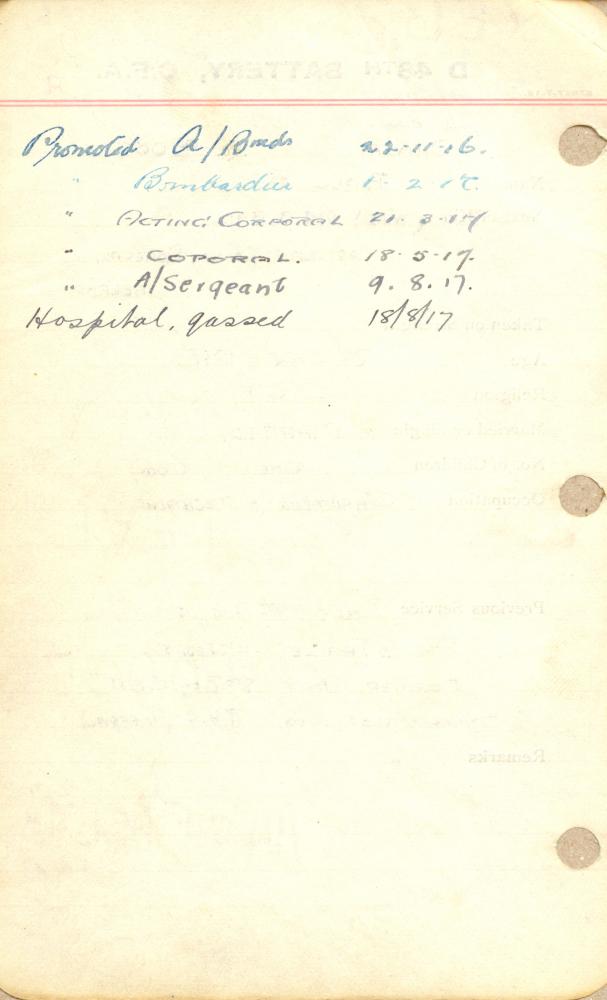 Promoted A/Bmdr 22-11-16.
" Bombardier 1-2-17.
" ACTING CORPORAL 21-3-17
" COPORAL. 18-5-17.
" A/Sergeant 9.8.17.
Hospital, gassed 18/8/17